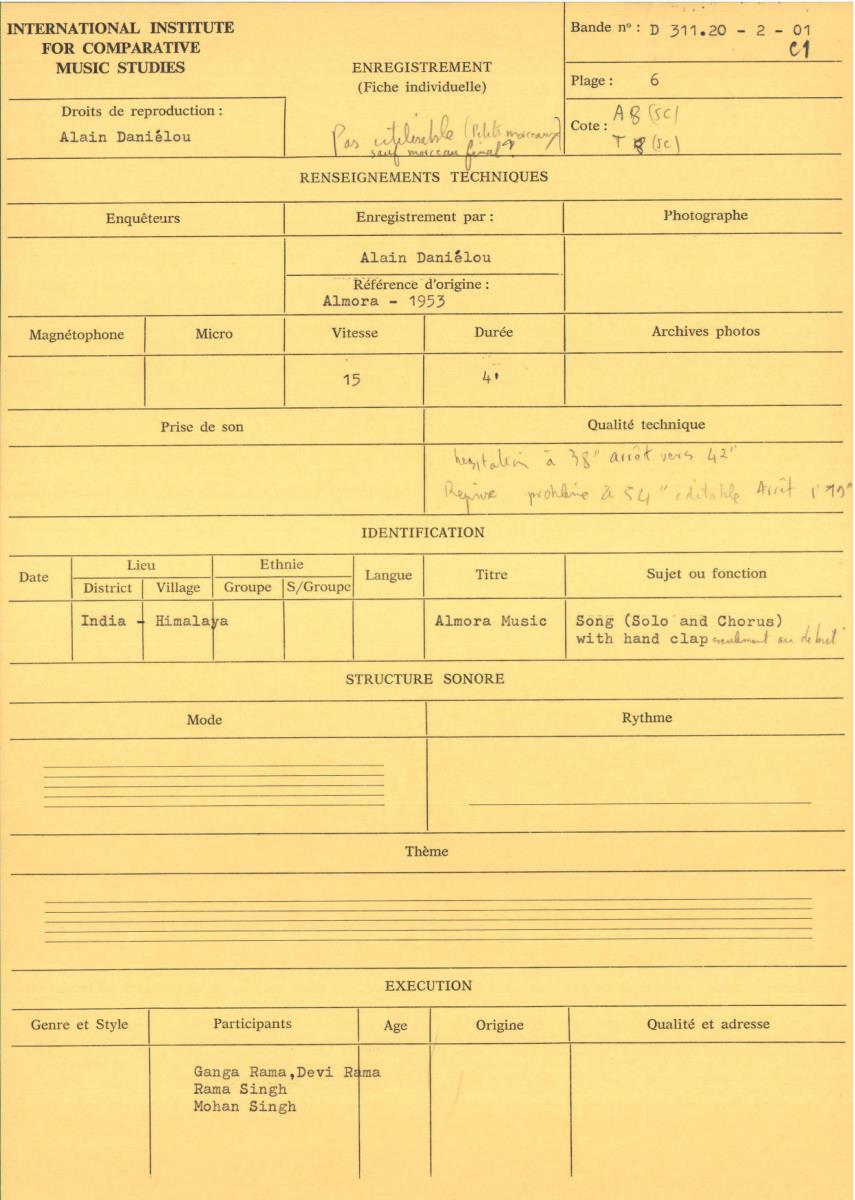 INTERNATIONAL INSTITUTE
FOR COMPARATIVE
MUSIC STUDIES
Droits de reproduction :
Alain Daniélou
ENREGISTREMENT
(Fiche individuelle)
Pas utilisable (Petits morceaux)
sauf morceau final ?
Bande nº : D 311.20 - 2 - 01
C1
Plage : 6
Cote : A 8 (sc)
T 8 (sc)
RENSEIGNEMENTS TECHNIQUES
Enquêteurs
Enregistrement par :
Photographe
Alain Daniélou
Référence d'origine :
Almora - 1953
Magnétophone
Micro
Vitesse
Durée
Archives photos
15
4'
Prise de son
Qualité technique
hésitation à 38" arrêt vers 42"
Reprise problème à 54" éditable Arrêt
IDENTIFICATION
Date
Lieu
Ethnie
Langue
Titre
Sujet ou fonction
District
Village
Groupe
S/Groupe
India - Himalaya
Almora Music
Song (Solo and Chorus)
with hand clap seulement au début
STRUCTURE SONORE
Mode
Rythme
Thème
EXECUTION
Genre et Style
Participants
Age
Origine
Qualité et adresse
Ganga Rama,Devi Rama
Rama Singh
Mohan Singh